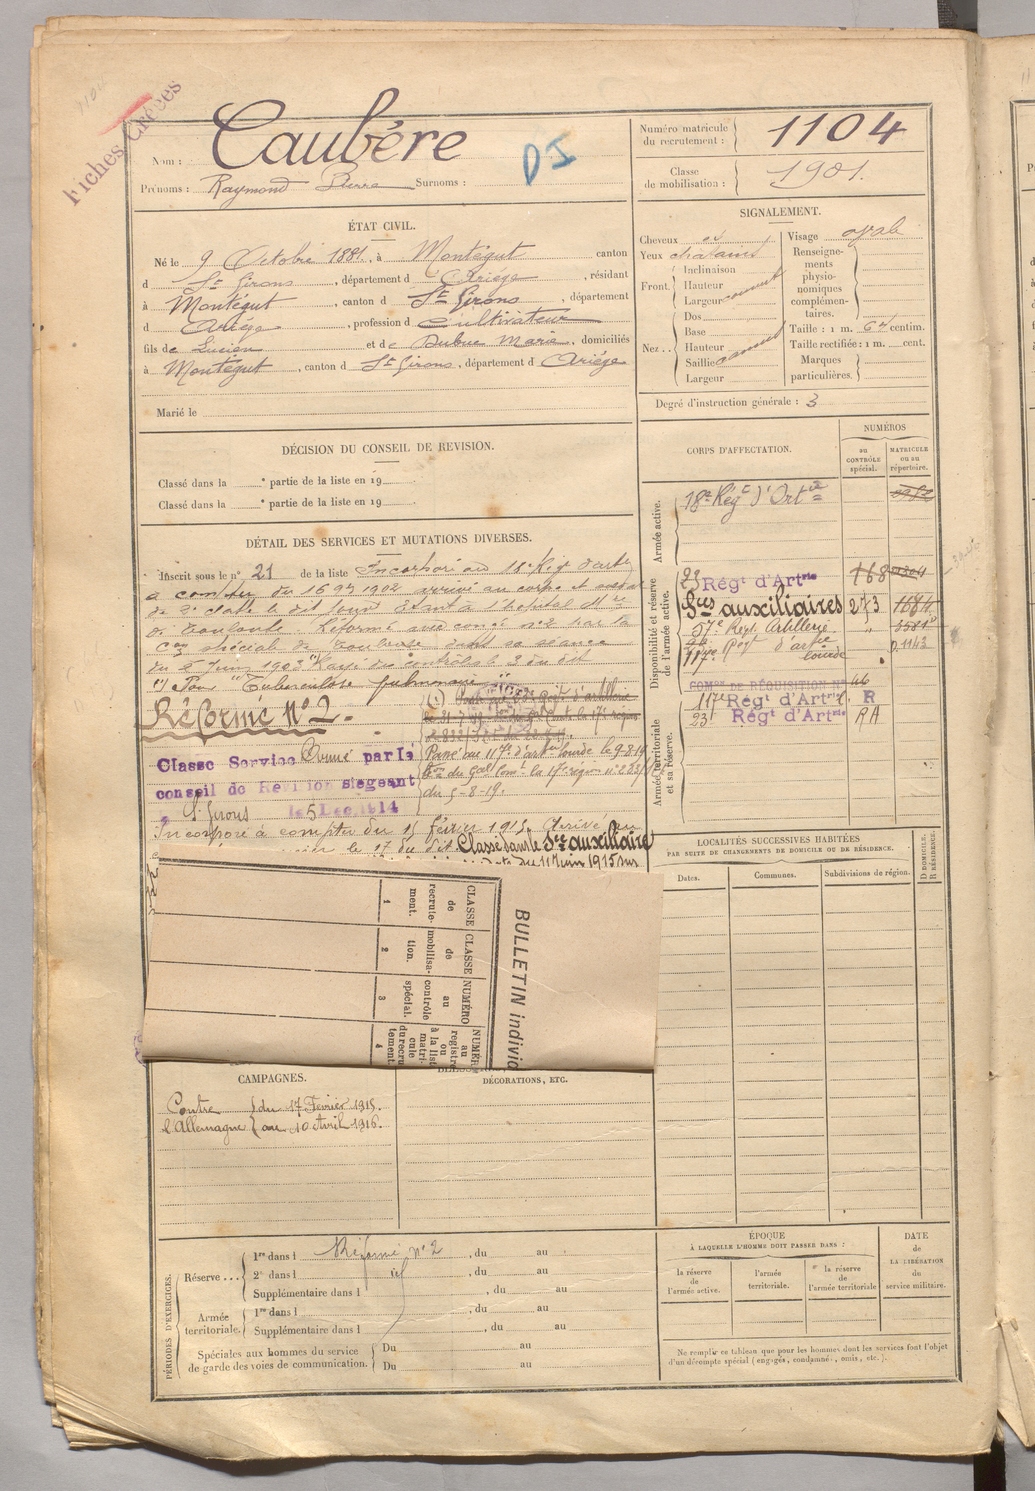 Fiches Créées
Nom : Caubère
Prénoms : Raymond Pierre Surnoms :
DI
Numéro matricule du recrutement : 1104
Classe de mobilisation : 1901.
ÉTAT CIVIL.
Né le 9 Octobre 1881, à Montégut canton
d St Girons, département d Ariège, résidant
à Montégut, canton d St Girons, département
d Ariège, profession d Cultivateur
fils de Lucien et de Dubuc Marie, domiciliés
à Montégut, canton d St Girons, département d Ariège
Marié le
SIGNALEMENT.
Cheveux Visage ovale
Yeux chatains
Front. Inclinaison
Hauteur
Largeur
Nez.. Dos
Base
Hauteur
Saillie
Largeur
Renseignements physionomiques complémentaires.
Taille : 1 m. 64 centim.
Taille rectifiée : 1 m. cent.
Marques particulières.
Degré d'instruction générale : 3
DÉCISION DU CONSEIL DE REVISION.
Classé dans la e partie de la liste en 19
Classé dans la e partie de la liste en 19
DÉTAIL DES SERVICES ET MUTATIONS DIVERSES.
Inscrit sous le n° 21 de la liste Incorporé au 18e Régt d'artie
à compter du 16 9bre 1902 arrivé au corps et
de 2e classe le dit jour étant à l'hôpital Mre
de Toulouse. Réformé avec congé n° 2 par la
Con spéciale de Toulouse dans sa séance
du Juin 1903 Rayé des contrôles le 3 du dit
(1) Pour "Tuberculose pulmonaire"
Réformé N° 2.
Classé Service Armé par le
conseil de Revision siégeant
à St Girons le 5 Dec. 1914
Passé au 117e d'artie lourde le 9-8-19
du Gal Comt la 17e région
du 5-8-19.
Incorporé à compter du 15 février 1915. Arrivé au
le 17 du dit Classé dans le Sce auxiliaire
du 11 Juin 1915 sur
CORPS D'AFFECTATION.
NUMÉROS
au CONTRÔLE spécial.
MATRICULE ou au répertoire.
Armée active.
18e Régt d'Artie
Disponibilité et réserve de l'armée active.
23 Régt d'Artrie 768
Sces auxiliaires 273 1684
57e Régt Artillerie "
117e Régt d'artie lourde 01143
COMon DE RÉQUISITION N° 46
Armée territoriale et sa réserve.
117e Régt d'Artrie R
23 Régt d'Artrie RA
LOCALITÉS SUCCESSIVES HABITÉES
PAR SUITE DE CHANGEMENTS DE DOMICILE OU DE RÉSIDENCE.
Dates. Communes. Subdivisions de région.
D DOMICILE. R RÉSIDENCE.
BULLETIN individ
CLASSE de recrutement. 1
CLASSE de mobilisation. 2
NUMÉRO au contrôle spécial. 3
NUMÉR au registre ou à la list matricule du recrutement. 4
CAMPAGNES.
Contre l'Allemagne
du 17 Février 1915.
au 10 Avril 1916.
DÉCORATIONS, ETC.
PÉRIODES D'EXERCICES.
Réserve ... 1re dans l Réformé n° 2, du au
2e dans l id, du au
Supplémentaire dans l , du au
Armée territoriale. 1re dans l , du au
Supplémentaire dans l , du au
Spéciales aux hommes du service de garde des voies de communication.
Du au
Du au
ÉPOQUE
À LAQUELLE L'HOMME DOIT PASSER DANS :
la réserve de l'armée active.
l'armée territoriale.
la réserve de l'armée territoriale
DATE de LA LIBÉRATION du service militaire.
Ne remplir ce tableau que pour les hommes dont les services font l'objet
d'un décompte spécial (engagés, condamné, omis, etc.).